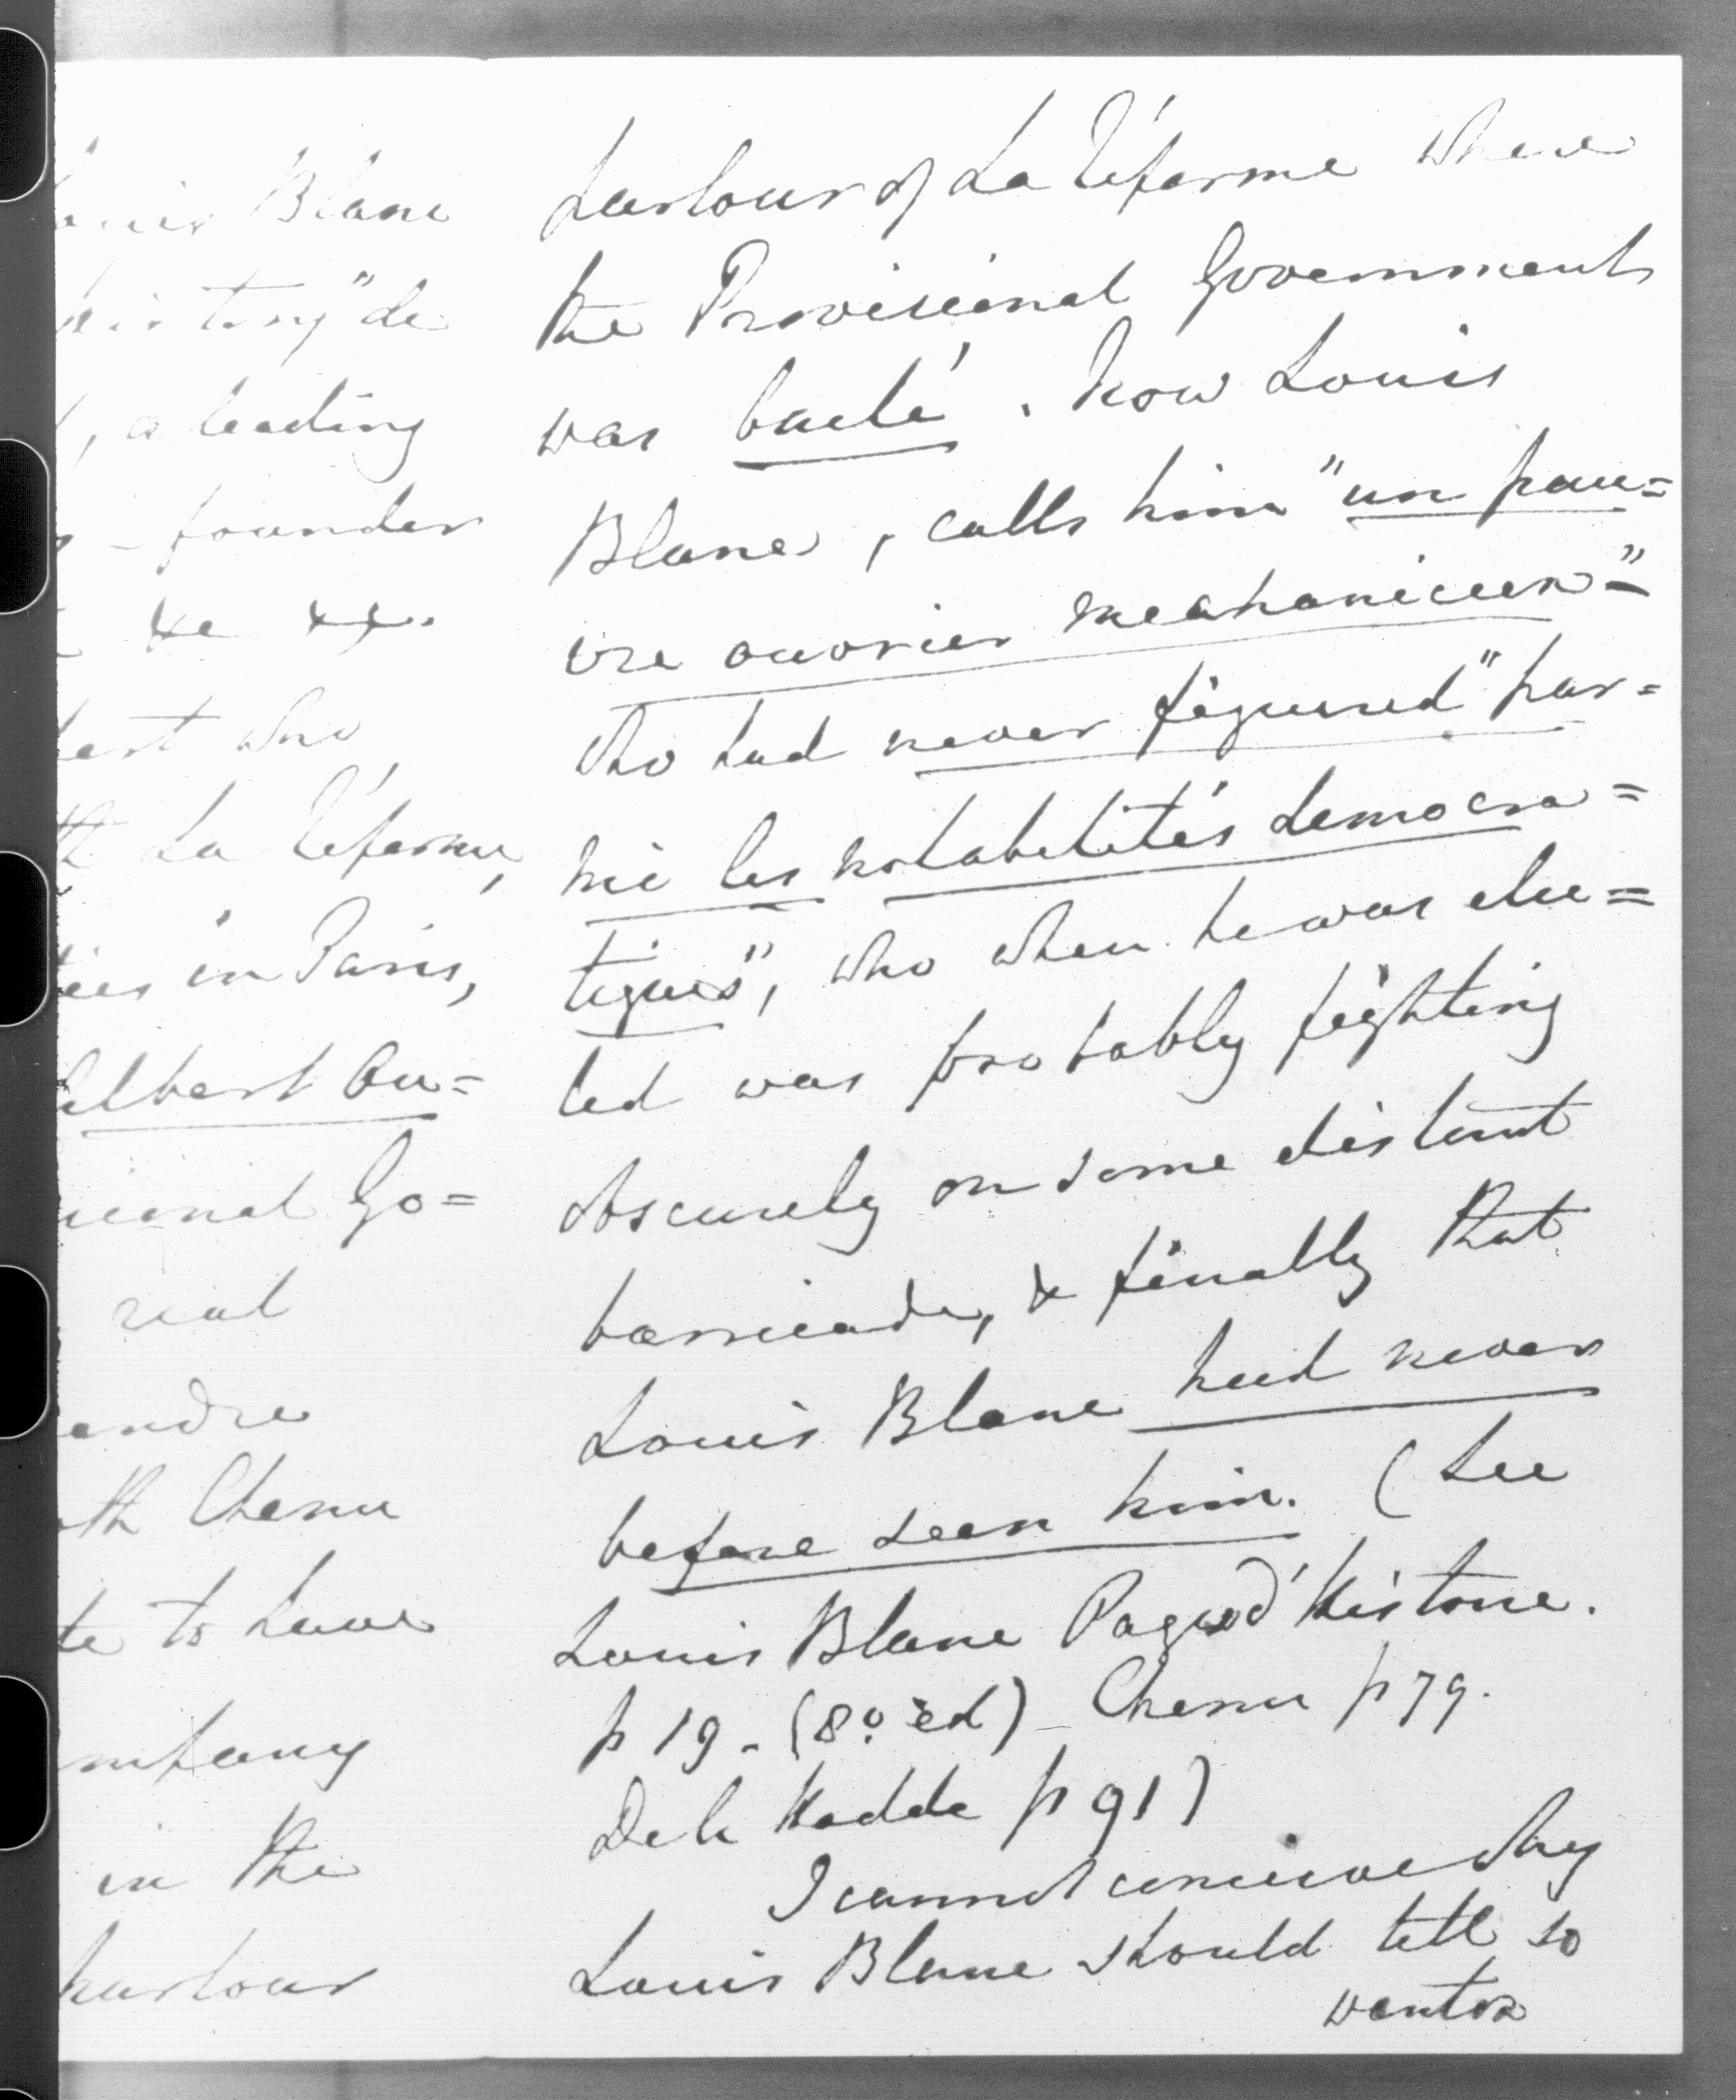 Louis Blanc
history" de
, a leading
founder
&c &c.
bert who
La Réforme,
ties in Paris,
Albert Ou=
sional Go=
real
andre
th Chenu
te to have
mpany
in the
parlour
parlour of La Réforme where
the Provisional Government
was baclé. Now Louis
Blanc, calls him "un pau=
vre ouvrier mechanicien"
who had never figured "par=
mi les notabilités democra=
tiques", who when he was elec=
ted was probably fighting
obscurely on some distant
barricade, & finally that
Louis Blanc had never
before seen him. (See
Louis Blanc Pages d'Histoire.
p 19. (8o ed) – Chenu p 79.
De la Hodde p 91)
I cannot conceive why
Louis Blanc should tell so
wanton